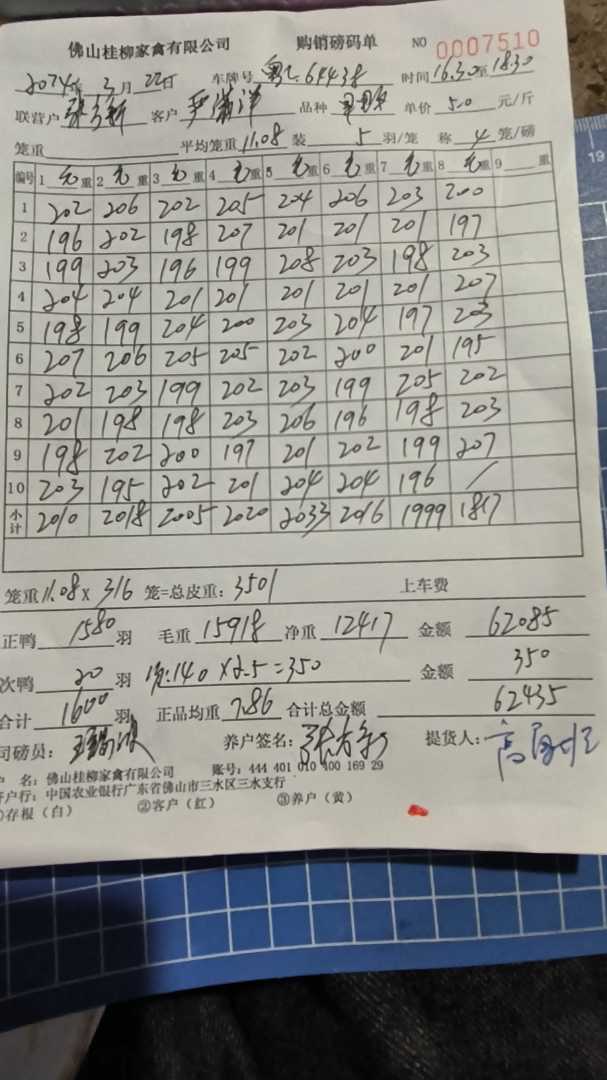 佛山桂柳家禽有限公司 购销磅码单 NO 0007510
2024年3月22日 车牌号 时间16.30至18.30
联营户 客户 品种 单价 5.0 元/斤
笼重 平均笼重11.08 装 5 羽/笼 称 4 笼/磅
编号 1 毛重 2 毛重 3 毛重 4 毛重 5 毛重 6 毛重 7 毛重 8 毛重 9 重
1 202 206 202 205 204 206 203 200
2 196 202 198 207 201 201 201 197
3 199 203 196 199 208 203 198 203
4 204 204 201 201 201 201 201 207
5 198 199 204 200 203 204 197 203
6 207 206 205 205 202 200 201 195
7 202 203 199 202 203 199 205 202
8 201 198 198 203 206 196 198 203
9 198 202 200 197 201 202 199 207
10 203 195 202 201 204 204 196 /
小计 2010 2018 2005 2020 2033 2016 1999 1817
笼重11.08 x 316 笼=总皮重:3501 上车费
正鸭 1580 羽 毛重 15918 净重 12417 金额 62085
次鸭 20 羽 140 x 2.5 = 350 金额 350
合计 1600 羽 正品均重 7.86 合计总金额 62435
司磅员: 养户签名: 提货人:
户 名:佛山桂柳家禽有限公司 账号:444 401 010 400 169 29
开户行:中国农业银行广东省佛山市三水区三水支行
①存根(白) ②客户(红) ③养户(黄)
19